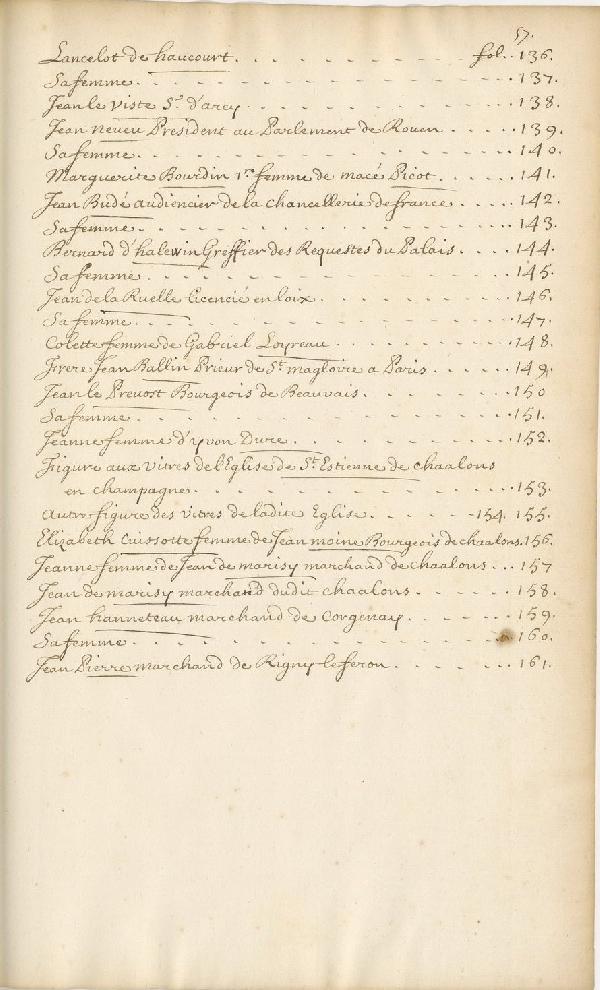 57.
Lancelot de haucourt . . . . . . . . . fol. . 136.
Sa femme . . . . . . . . . . 137.
Jean le viste Sr. d'arcy . . . . . . . . . 138.
Jean neveu President au Parlement de Rouen . . . . . 139.
Sa femme . . . . . . . . . . 140.
Marguerite Bourdin 1re femme de macé Picot . . . . . 141.
Jean Budé audiencier de la chancellerie de france . . . . 142.
Sa femme . . . . . . . . . . 143.
Bernard d'halewin Greffier des Requestes du Palais . . . . 144.
Sa femme . . . . . . . . . . 145.
Jean de la Ruelle licencié en loix . . . . . . . 146.
Sa femme . . . . . . . . . . 147.
Colette femme de Gabriel Loyreau . . . . . . . 148.
Frere Jean Ballin Prieur de St. magloire a Paris . . . . 149.
Jean le Prevost Bourgeois de Beauvais . . . . . . 150
Sa femme . . . . . . . . . . 151.
Jeanne femme d'yvon Dure . . . . . . . . 152.
Figure aux vitres de l'Eglise de St. Estienne de chaalons
en champagne . . . . . . . . . . 153.
Autre figure des vitres de ladite Eglise . . . . . 154. 155.
Elizabeth Cuissotte femme de Jean moine Bourgeois de chaalons. 156.
Jeanne femme de Jean de marisy marchand de chaalons . . . 157
Jean de marisy marchand dudit chaalons . . . . . 158.
Jean hanneteau marchand de Corgenay . . . . . . 159.
Sa femme . . . . . . . . . . 160.
Jean Pierre marchand de Rigny le feron . . . . . . 161.